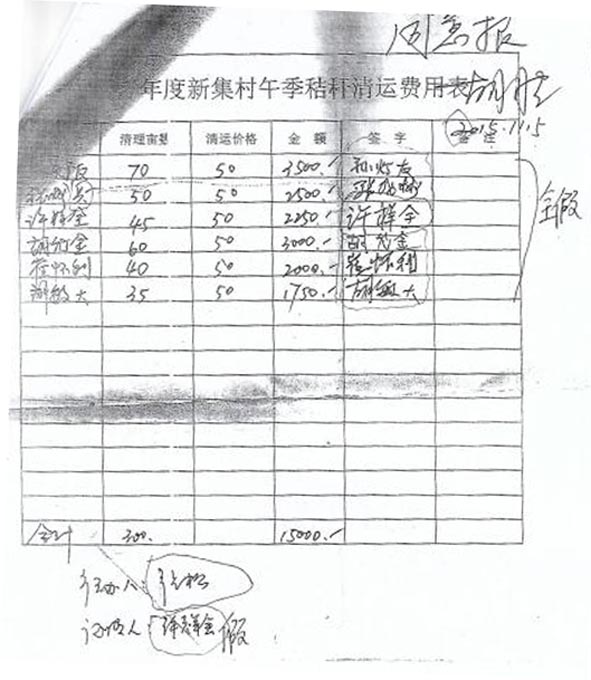 同意报
年度新集村午季秸秆清运费用表
2015.11.5
清理亩数 清运价格 金额 签字 备注
70 50 3500.-
50 50 2500.-
许祥全 45 50 2250.- 许祥全
胡茂金 60 50 3000.- 胡茂金
崔怀利 40 50 2000.- 崔怀利
胡敏大 35 50 1750.- 胡敏大
全假
合计 300. 15000.-
经办人: 张松
证明人: 许祥全 假